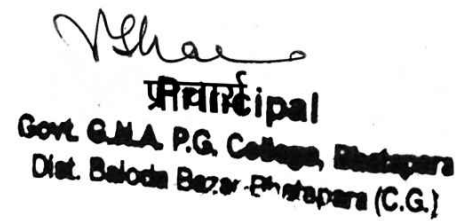 प्राचार्य Principal
Govt. G.N.A. P.G. College, Bhatapara
Dist. Baloda Bazar-Bhatapara (C.G.)